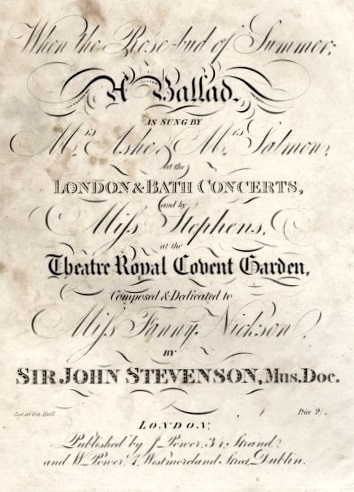 When the Rose-bud of Summer;
A Ballad,
AS SUNG BY
Mrs. Ashe & Mrs. Salmon,
at the
LONDON & BATH CONCERTS,
and by
Miss Stephens,
at the
Theatre Royal Covent Garden,
Composed & Dedicated to
Miss Fanny Nickson
BY
SIR JOHN STEVENSON, Mus. Doc.
Ent. at Sta. Hall
Price 2/.
LONDON;
Published by J. Power, 34, Strand;
and W. Power, 4, Westmoreland Street, Dublin.